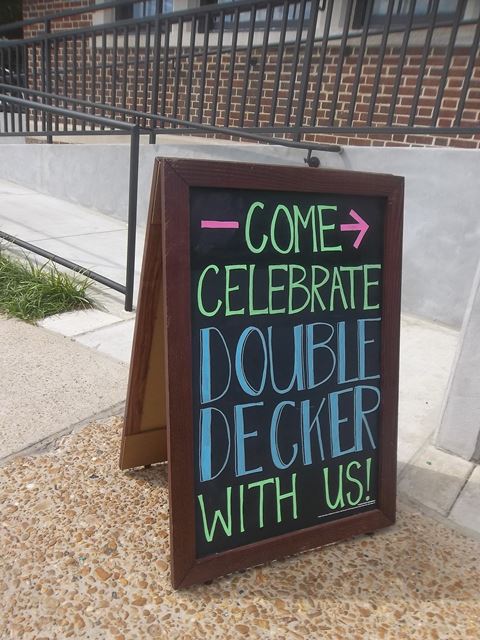 — COME →
CELEBRATE
DOUBLE
DECKER
WITH US!